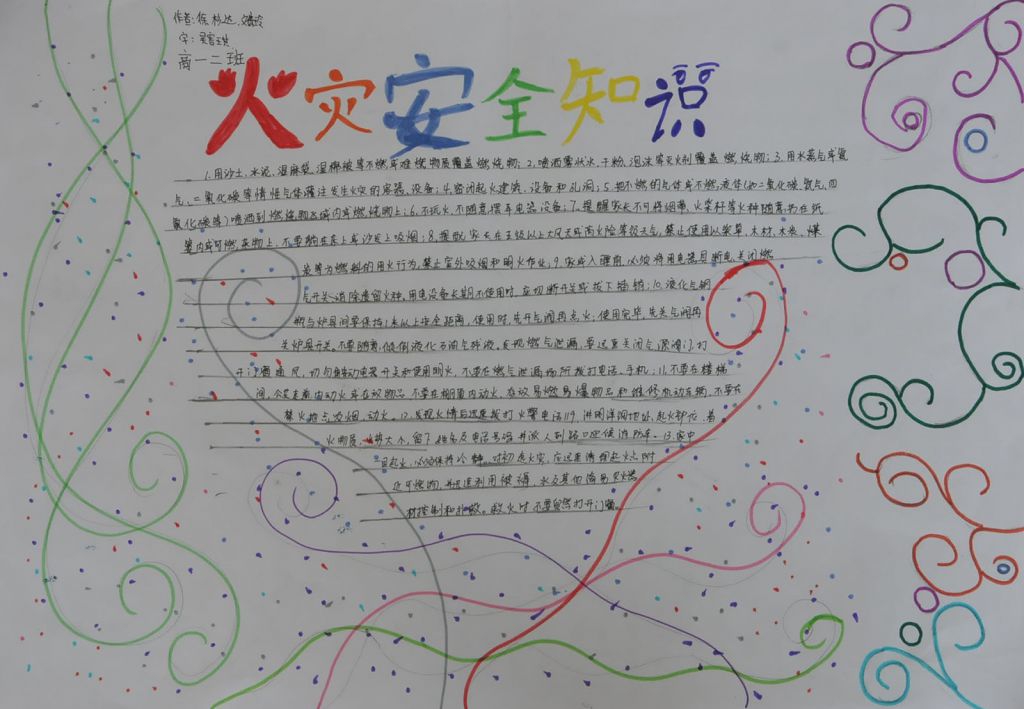 作者:徐杉达、
字:
高一二班
火灾安全知识
1.用沙土、水泥、湿麻袋、湿棉被等不燃或难燃物质覆盖燃烧物;2.喷洒雾状水、干粉、泡沫等灭火剂覆盖燃烧物;3.用水蒸气或氮
气、二氧化碳等惰性气体灌注发生火灾的容器、设备;4.密闭起火建筑、设备和孔洞;5.把不燃的气体或不燃液体(如二氧化碳、氮气、四
氯化碳等)喷洒到燃烧物区域内或燃烧物上;6.不玩火、不随意摆弄电器设备;7.提醒家长不可将烟蒂、火柴杆等火种随意扔在纸
篓内或可燃杂物上,不要躺在床上或沙发上吸烟;8.提醒家长在五级以上大风天或高火险等级天气,禁止使用以柴草、木材、木炭、煤
炭等为燃料的用火行为,禁止室外吸烟和明火作业;9.家庭入睡前,必须将用电器具断电、关闭燃
气开关、消除遗留火种。用电设备长期不使用时,应切断开关或拔下插销;10.液化气钢
瓶与炉具间要保持1米以上安全距离,使用时,先开气阀再点火;使用完毕,先关气阀再
关炉具开关。不要随意倾倒液化石油气残液。发现燃气泄漏,要迅速关闭气源阀门,打
开门窗通风,切勿触动电器开关和使用明火,不要在燃气泄漏场所拨打电话、手机;11.不要在楼梯
间、公共走廊内动火或存放物品,不要在棚厦内动火、存放易燃易爆物品和维修机动车辆,不要在
禁火地点吸烟、动火。12.发现火情后迅速拨打火警电话119,讲明详细地址、起火部位、着
火物质、火势大小、留下姓名及电话号码,并派人到路口迎候消防车。13.家中
一旦起火,必须保持冷静。对初起火灾,应迅速清理起火点附
近可燃物,并迅速利用被褥、水及其他简易灭火器
材控制和扑救。救火时不要贸然打开门窗。